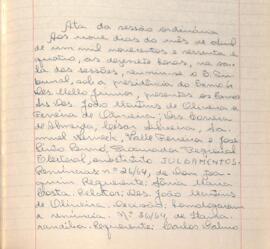 Ata da sessão ordinária
Aos nove dias do mês de abril
de um mil novecentos e sessenta e
quatro, às dezoito horas, na sa-
la das sessões, reuniu-se o B. Tri-
bunal, sob a presidência do Exmo. Sr.
Des. Mello Junior, presentes os Exmos.
Srs. Drs. João Martins de Oliveira e
Ferreira de Oliveira; Drs. Correa
de Almeida, Cesar Silveira,
Valle Ferreira e José
Pinto Renno, Procurador Regional
Eleitoral, substituto. JULGAMENTOS.
Renúncias nº 26/64, de Dom Joa-
quim. Requerente: Maria
Costa. Relator: Des. João Martins
de Oliveira. Decisão: homologaram
a renúncia. Nº 36/64, de
Requerente: Carlos